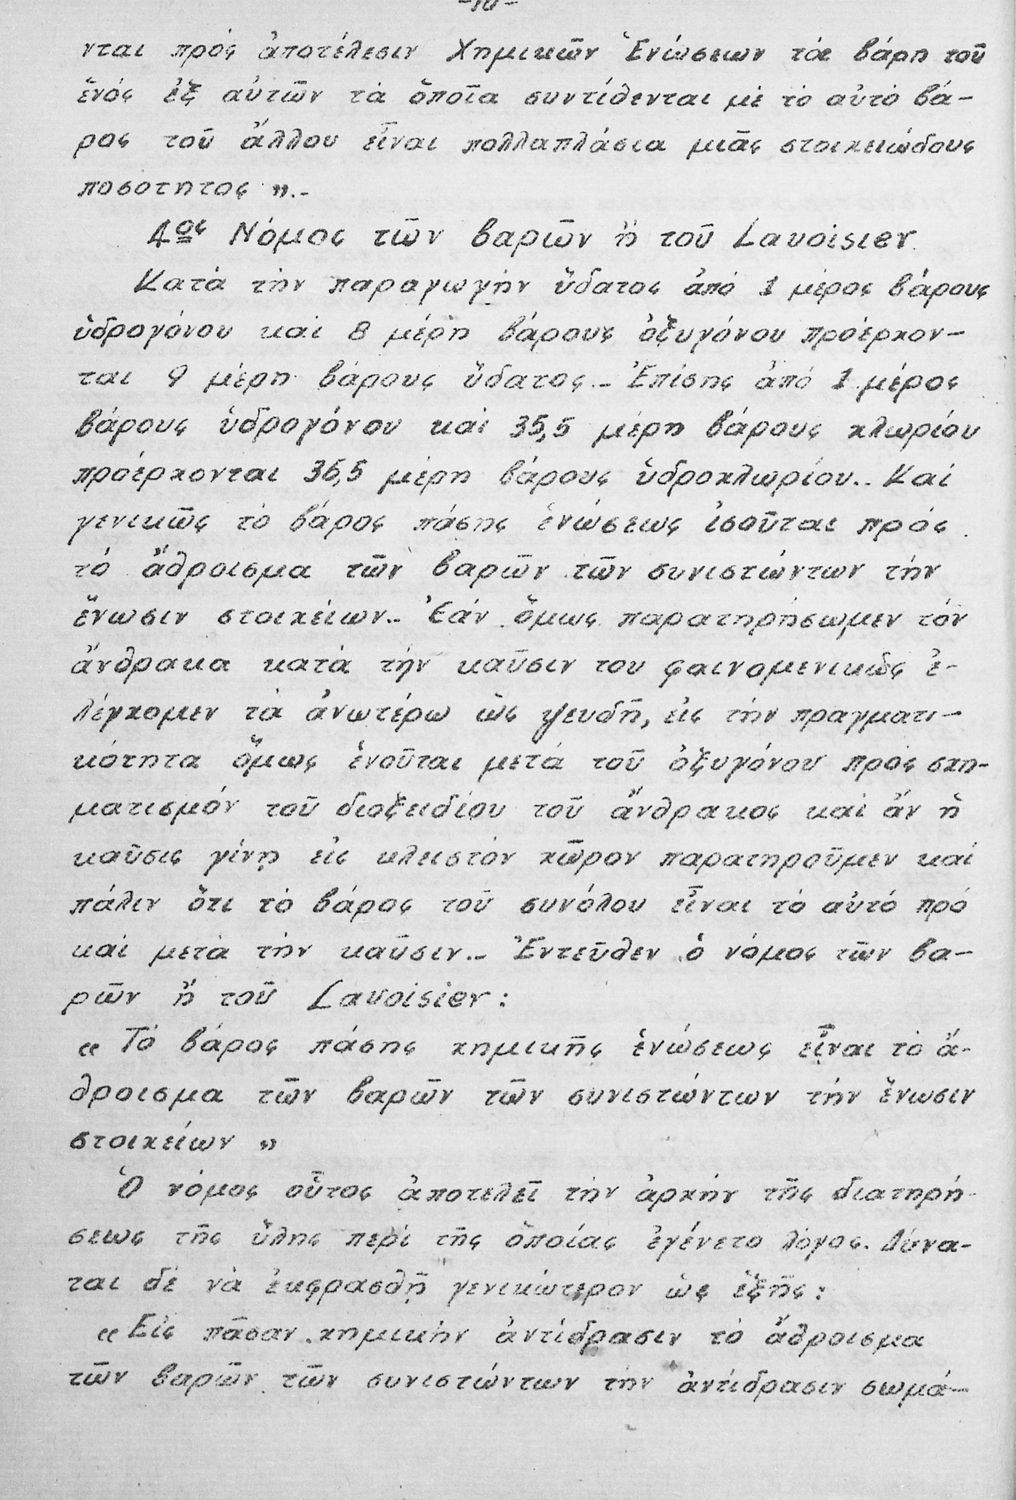 -10-
νται πρός ἀποτέλεσιν Χημικῶν Ἑνώσεων τὰ βάρη τοῦ
ἑνός ἐξ αὐτῶν τὰ ὁποῖα συντίθενται μὲ τὸ αὐτὸ βά-
ρος τοῦ ἄλλου εἶναι πολλαπλάσια μιᾶς στοιχειώδους
ποσοτητος ".-
4ος Νόμος τῶν βαρῶν ἤ τοῦ Lavoisier.
Κατά τὴν παραγωγὴν ὕδατος ἀπό 1 μέρος βάρους
ὑδρογόνου καὶ 8 μέρη βάρους ὀξυγόνου προέρχον-
ται 9 μέρη βάρους ὕδατος.- Ἐπίσης ἀπό 1 μέρος
βάρους ὑδρογόνου καὶ 35,5 μέρη βάρους χλωρίου
προέρχονται 36,5 μέρη βάρους ὑδροχλωρίου.. Καί
γενικῶς τὸ βάρος πάσης ἑνώσεως ἰσοῦται πρός
τό ἄθροισμα τῶν βαρῶν τῶν συνιστώντων τήν
ἕνωσιν στοιχείων.. Ἐάν ὅμως παρατηρήσωμεν τόν
ἄνθρακα κατά τήν καῦσιν του φαινομενικῶς ἐ-
λέγχομεν τὰ ἀνωτέρω ὡς ψευδῆ, εἰς τήν πραγματι-
κότητα ὅμως ἑνοῦται μετά τοῦ ὀξυγόνου πρός σχη-
ματισμόν τοῦ διοξειδίου τοῦ ἄνθρακος καὶ ἄν ἡ
καῦσις γίνῃ εἰς κλειστόν χῶρον παρατηροῦμεν καί
πάλιν ὅτι τὸ βάρος τοῦ συνόλου εἶναι τὸ αὐτό πρό
καὶ μετὰ τὴν καῦσιν.- Ἐντεῦθεν ὁ νόμος τῶν βα-
ρῶν ἤ τοῦ Lavoisier:
« Τὸ βάρος πάσης χημικῆς ἑνώσεως εἶναι τὸ ἄ-
θροισμα τῶν βαρῶν τῶν συνιστώντων τήν ἕνωσιν
στοιχείων »
Ὁ νόμος οὗτος ἀποτελεῖ τὴν ἀρχήν τῆς διατηρή-
σεως τῆς ὕλης περί τῆς ὁποίας ἐγένετο λόγος. Δύνα-
ται δὲ νὰ ἐκφρασθῇ γενικώτερον ὡς ἑξῆς:
« Εἰς πᾶσαν χημικὴν ἀντίδρασιν τὸ ἄθροισμα
τῶν βαρῶν τῶν συνιστώντων τὴν ἀντίδρασιν σωμά-